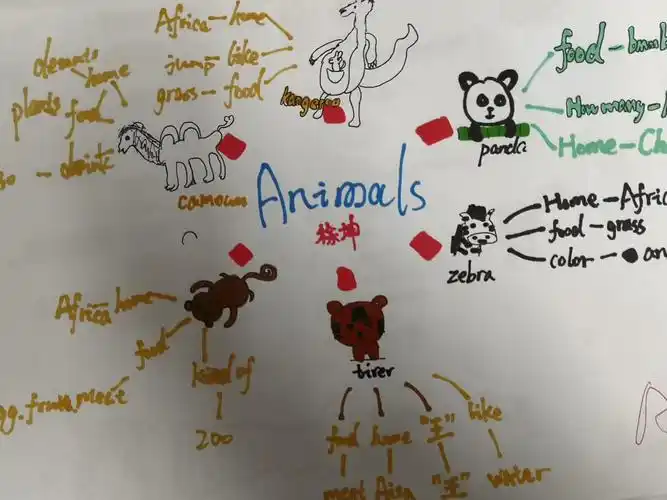 Africa - home
jump like
grass - food
kangaroo
home
plants food
Animals
food - bmb
How many -
Home - Ch
panda
Home - Afric
food - grass
color - an
zebra
Africa home
food
gg. fruit. meet
kind of
200
tirer
food home "王" like
meet Aisa "王" water